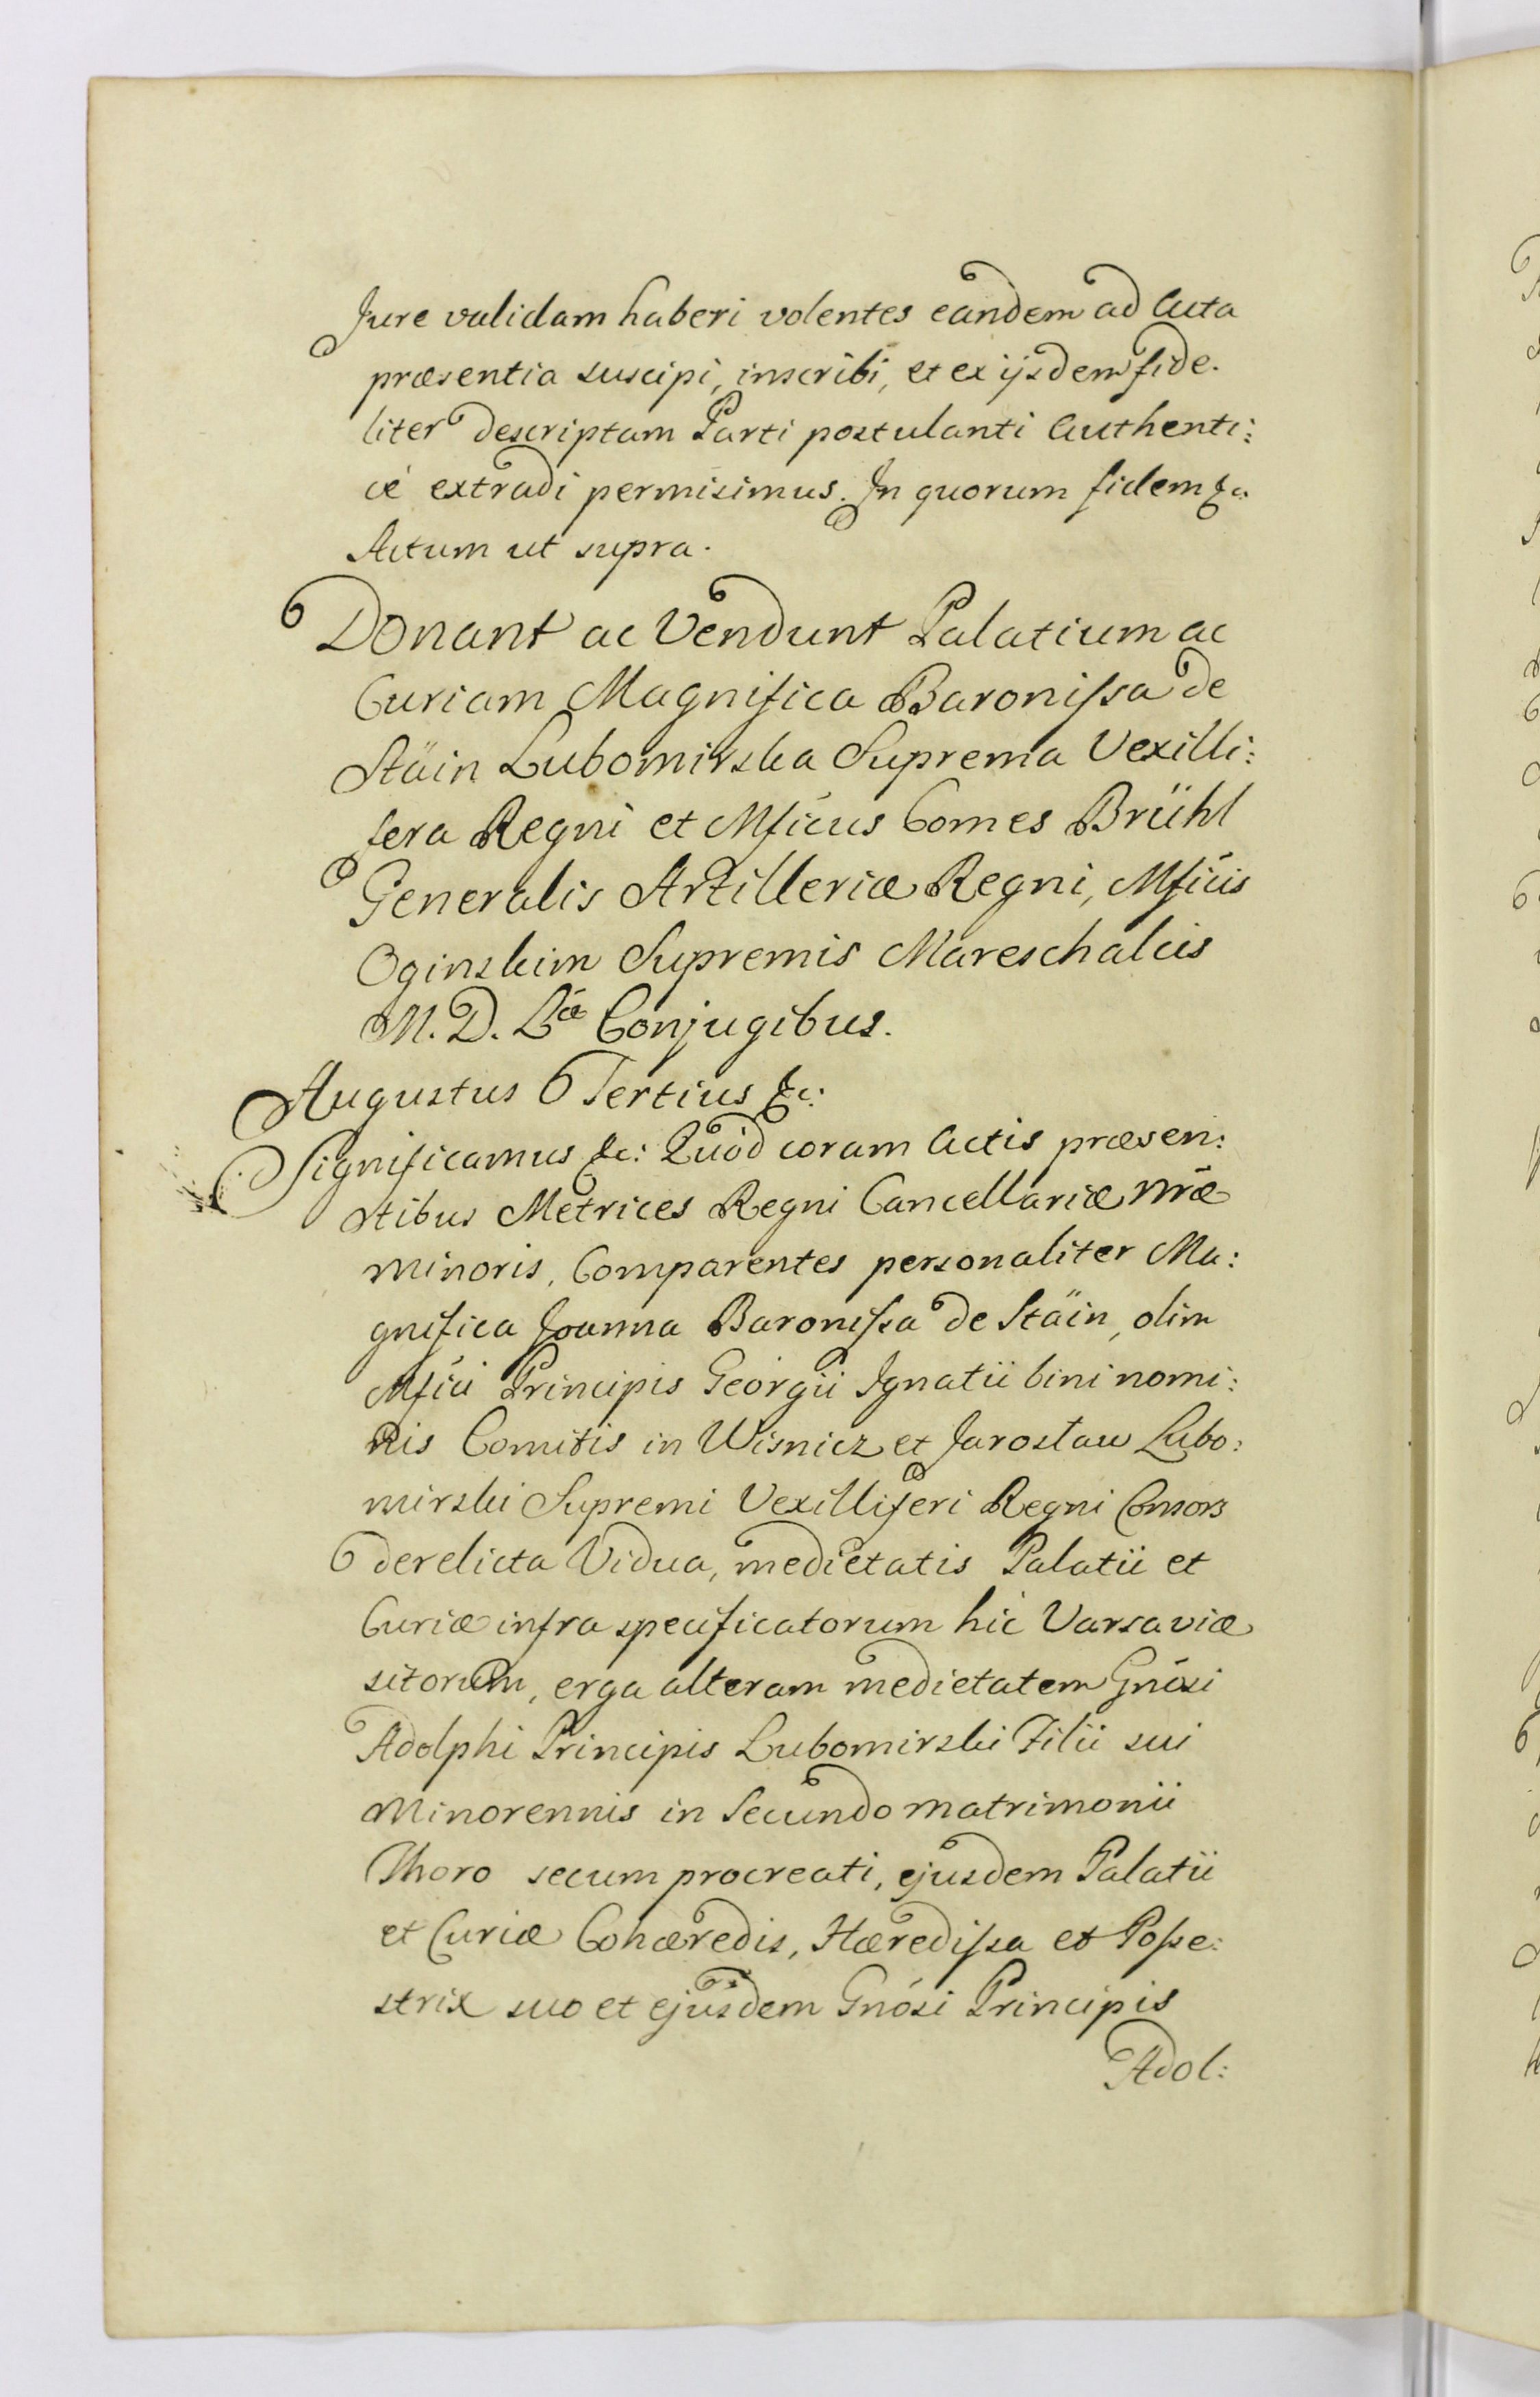 Jure validam haberi volentes eandem ad Acta
præsentia suscipi, inscribi, et ex ijsdem fide.
liter descriptam Parti postulanti Authenti:
cè extradi permisimus. In quorum fidem &c.
Actum ut supra.
Donant ac Vendunt Palatium ac
Curiam Magnifica Baronissa de
Stäin Lubomirska Suprema Vexilli:
fera Regni et Mficus Comes Brühl
Generalis Artilleriæ Regni, Mficis
Oginskim Supremis Mareschalcis
M. D. Læ Conjugibus.
Augustus Tertius &c:
Significamus &c: Quod coram Actis præsen:
tibus Metrices Regni Cancellariæ nræ
minoris, Comparentes personaliter Ma:
gnifica Joanna Baronissa de Stäin, olim
Mfici Principis Georgii Ignatii bini nomi:
nis Comitis in Wisnicz et Jaroslaw Lubo:
mirski Supremi Vexilliferi Regni Consors
derelicta Vidua, medietatis Palatii et
Curiæ infra specificatorum hic Varsaviæ
sitorum, erga alteram medietatem Gnosi
Adolphi Principis Lubomirski Filii sui
Minorennis in Secundo matrimonii
Thoro secum procreati, ejusdem Palatii
et Curiæ Cohæredis, Hæredissa et Posse:
strix suo et ejusdem Gnosi Principis
Adol: